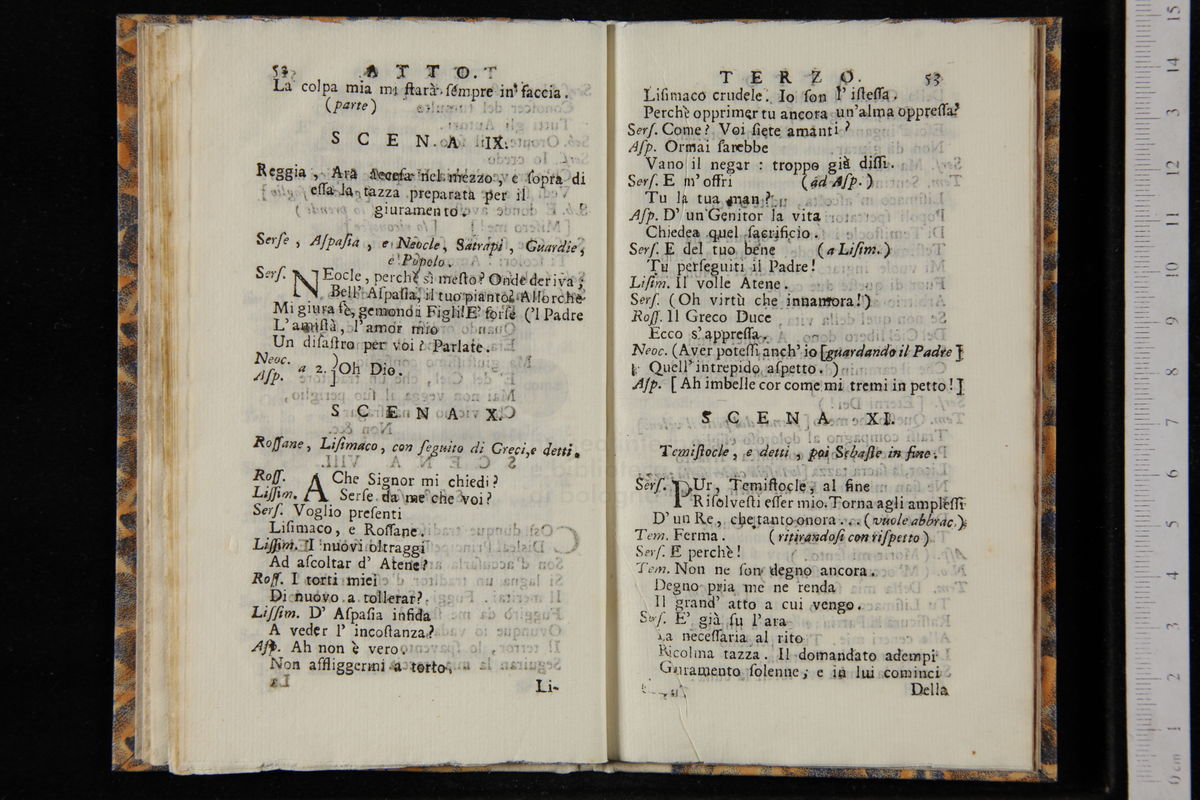 52 ATTO.
La colpa mia mi ſtarà ſempre in faccia.
(parte)
SCENA IX.
Reggia, Ara acceſa nel mezzo, e ſopra di
eſſa la tazza preparata per il
giuramento.
Serſe, Aſpaſia, e Neocle, Satrapi, Guardie,
e Popolo.
Serſ. NEocle, perchè sì meſto? Onde deriva,
Bell' Aſpaſia, il tuo pianto? Allorchè
Mi giura fè, gemono i Figli! E' forſe ('l Padre
L' amiſtà, l' amor mio
Un diſaſtro per voi? Parlate.
Neoc.
Aſp. a 2. }Oh Dio.
SCENA X.
Roſſane, Liſimaco, con ſeguito di Greci, e detti.
Roſſ. A Che Signor mi chiedi?
Liſſim. Serſe da me che voi?
Serſ. Voglio preſenti
Liſimaco, e Roſſane.
Liſſim. I nuovi oltraggi
Ad aſcoltar d' Atene?
Roſſ. I torti miei
Di nuovo a tollerar?
Liſſim. D' Aſpaſia infida
A veder l' incoſtanza?
Aſp. Ah non è vero,
Non affliggermi a torto,
Li-
TERZO. 53
Liſimaco crudele. Io ſon l' iſteſſa.
Perchè opprimer tu ancora un'alma oppreſſa?
Serſ. Come? Voi ſiete amanti?
Aſp. Ormai ſarebbe
Vano il negar: troppo già diſſi.
Serſ. E m' offri (ad Aſp.)
Tu la tua man?
Aſp. D' un Genitor la vita
Chiedea quel ſacrificio.
Serſ. E del tuo bene (a Liſim.)
Tu perſeguiti il Padre!
Liſim. Il volle Atene.
Serſ. (Oh virtù che innamora!)
Roſſ. Il Greco Duce
Ecco s' appreſſa.
Neoc. (Aver poteſſi anch' io [guardando il Padre]
Quell' intrepido aſpetto.)
Aſp. [Ah imbelle cor come mi tremi in petto!]
SCENA XI.
Temiſtocle, e detti, poi Sebaſte in fine.
Serſ. PUr, Temiſtocle, al fine
Riſolveſti eſſer mio. Torna agli ampleſſi
D' un Re, che tanto onora... (vuole abbrac.)
Tem. Ferma. (ritirandoſi con riſpetto)
Serſ. E perchè!
Tem. Non ne ſon degno ancora.
Degno pria me ne renda
Il grand' atto a cui vengo.
Serſ. E' già ſu l' ara
La neceſſaria al rito
Ricolma tazza. Il domandato adempi
Giuramento ſolenne, e in lui cominci
Della